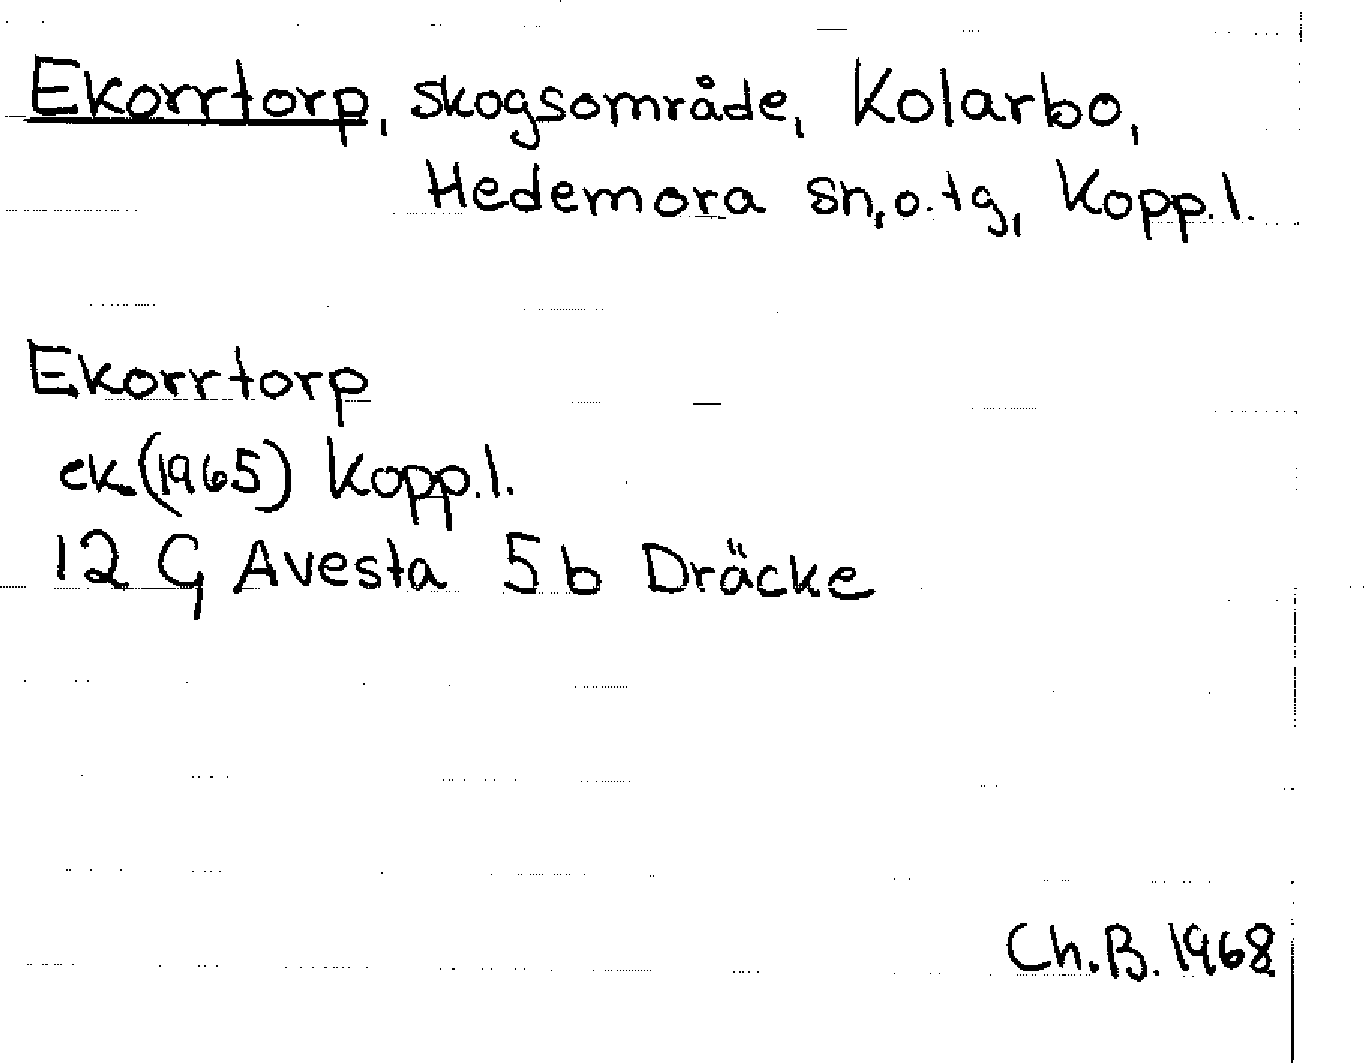 Ekorrtorp, skogsområde, Kolarbo,
Hedemora sn, o. tg, Kopp. l.
Ekorrtorp
ek (1965) Kopp. l.
12 G Avesta 5 b Dräcke
Ch. B. 1968